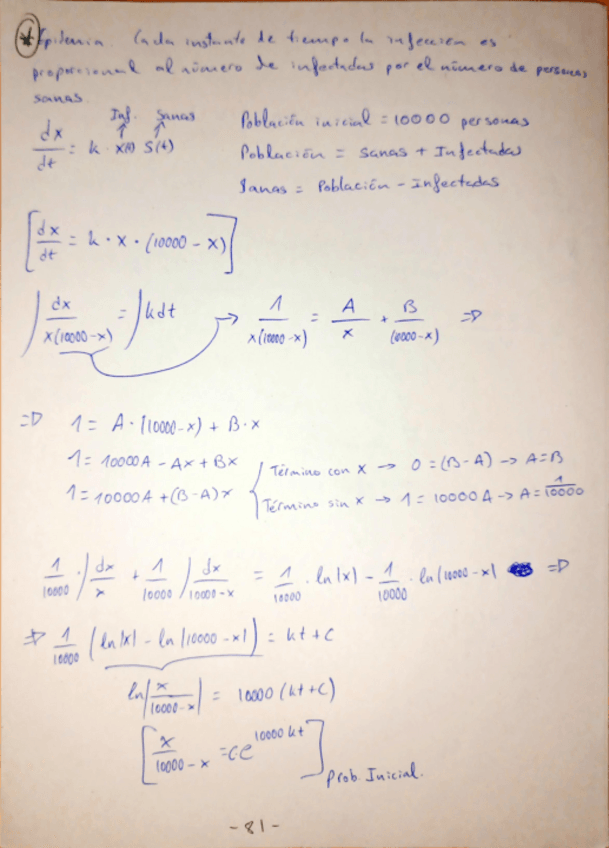 * Epidemia. Cada instante de tiempo la infección es
proporcional al número de infectados por el número de personas
sanas
Inf. Sanas
dx/dt = k · x(t) S(t)
Población inicial = 10000 personas
Población = sanas + Infectados
Sanas = Población - Infectadas
[dx/dt = k · x · (10000 - x)]
∫ dx/x(10000-x) = ∫ k dt → 1/x(10000-x) = A/x + B/(10000-x) ⇒
⇒ 1 = A · (10000-x) + B · x
1 = 10000A - Ax + Bx
1 = 10000A + (B-A)x
Término con x → 0 = (B-A) → A = B
Término sin x → 1 = 10000A → A = 1/10000
1/10000 · ∫ dx/x + 1/10000 ∫ dx/10000-x = 1/10000 · ln|x| - 1/10000 · ln|10000-x| ⇒
⇒ 1/10000 (ln|x| - ln|10000-x|) = kt + C
ln|x/10000-x| = 10000 (kt+C)
[x/10000-x = C·e^10000kt] Prob. Inicial.
-81-